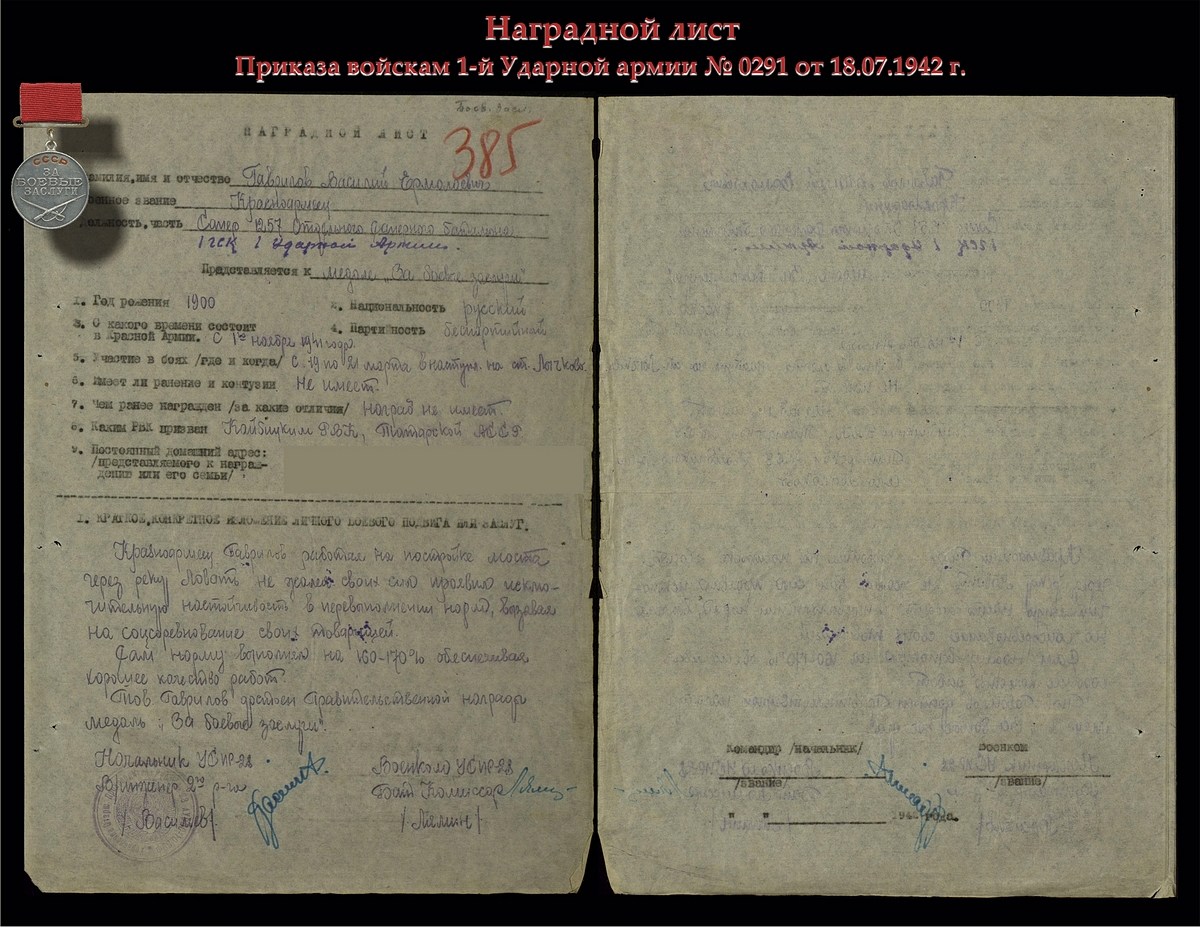 Наградной лист
Приказа войскам 1-й Ударной армии № 0291 от 18.07.1942 г.
СССР
ЗА
БОЕВЫЕ
ЗАСЛУГИ
НАГРАДНОЙ ЛИСТ
385
Фамилия,имя и отчество Гаврилов Василий Ермолаевич
Военное звание Красноармеец
Должность,часть Сапер 1257 Отдельного саперного батальона
1 гск 1 Ударной Армии.
Представляется к медали „За боевые заслуги"
1. Год рождения 1900
2. Национальность русский
3. О какого времени состоит
в Красной Армии. С 1го ноября 1941 года
4. Партийность беспартийный
5. Участие в боях /где и когда/ С 19 по 21 марта в наступл. на ст. Лычково
6. Имеет ли ранение и контузии Не имеет.
7. Чем ранее награжден /за какие отличия/ наград не имеет.
8. Каким РВК призван Кайбицким РВК, Татарской АССР
9. Постоянный домашний адрес:
/представляемого к награж-
дению или его семьи/
I. КРАТКОЕ,КОНКРЕТНОЕ ИЗЛОЖЕНИЕ ЛИЧНОГО БОЕВОГО ПОДВИГА ИЛИ ЗАСЛУГ.
Красноармеец Гаврилов работая на постройке моста
через реку Ловать не жалея своих сил проявил исклю-
чительную настойчивость в перевыполнении норм, вызвал
на соцсоревнование своих товарищей.
Сам норму выполнял на 160-170% обеспечивая
хорошее качество работ
Тов Гаврилов достоин Правительственной награды
медаль „За боевые заслуги".
Начальник УСВР-28
Военком УСВР-28
Воинженер 2го р-га
Бат. Комиссар
/Васильев/
/Лямин/
Командир /начальник/
Военком
/звание/
/звание/
" " 194 года.